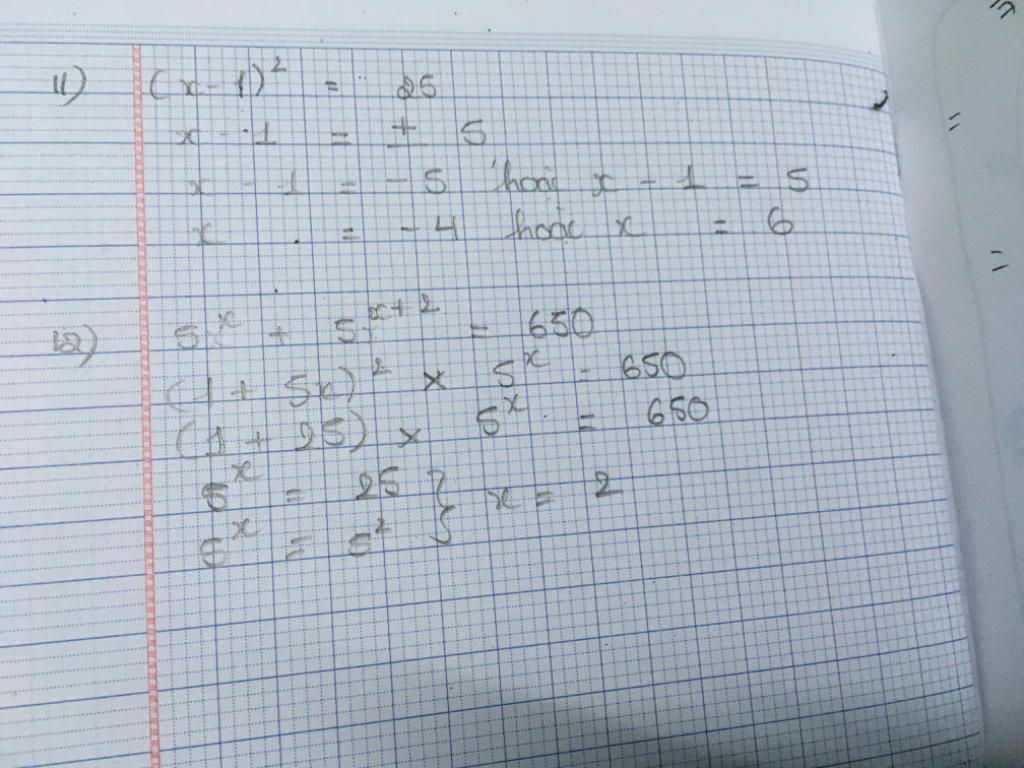 11) (x - 1)² = 25
x - 1 = ± 5
x - 1 = - 5 hoặc x - 1 = 5
x = - 4 hoặc x = 6
12) 5^x + 5^x+2 = 650
(1 + 5x)² × 5^x = 650
(1 + 25) × 5^x = 650
5^x = 25 } x = 2
5^x = 5²
=
=